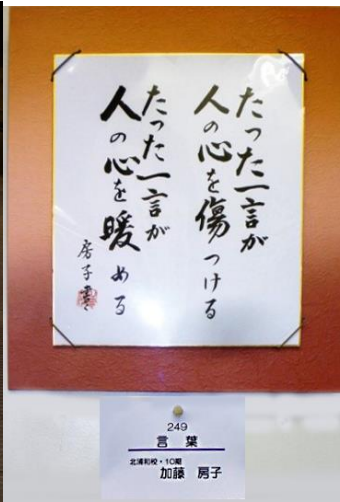 たった一言が
人の心を傷つける
たった一言が
人の心を暖める
房子書
249
言葉
北浦和校・10期
加藤 房子